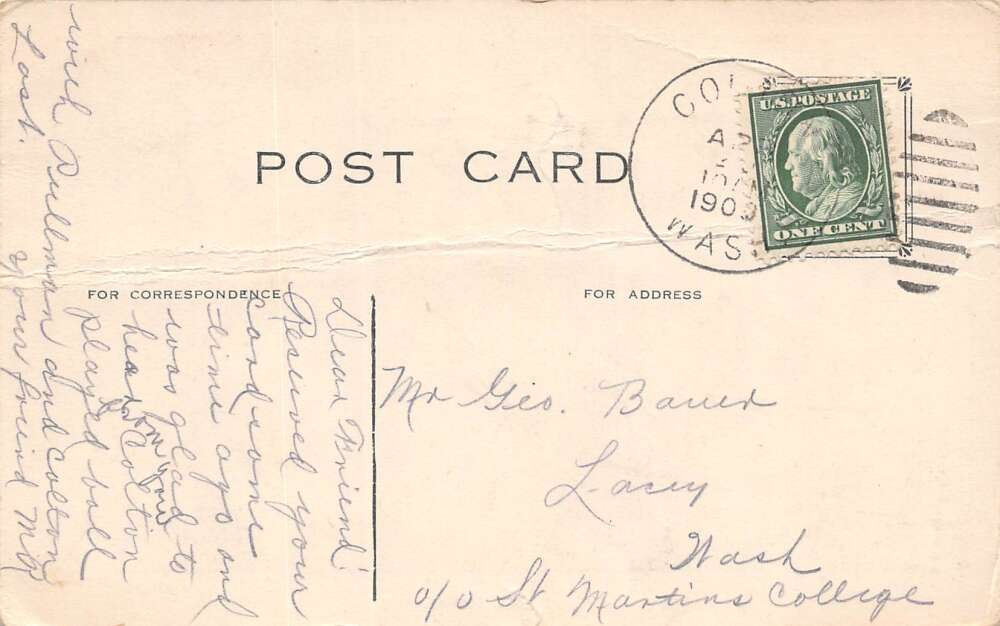 POST CARD
COL
1909
WAS
U.S. POSTAGE
ONE CENT
FOR CORRESPONDENCE
FOR ADDRESS
Dear Friend:
Reseived your
card some
time ago and
was glad to
hear from you Colton
played ball
with Pullman and Colton
Lost. your friend
Mr Geo. Bauer
Lacey
Wash
c/o St Martins College